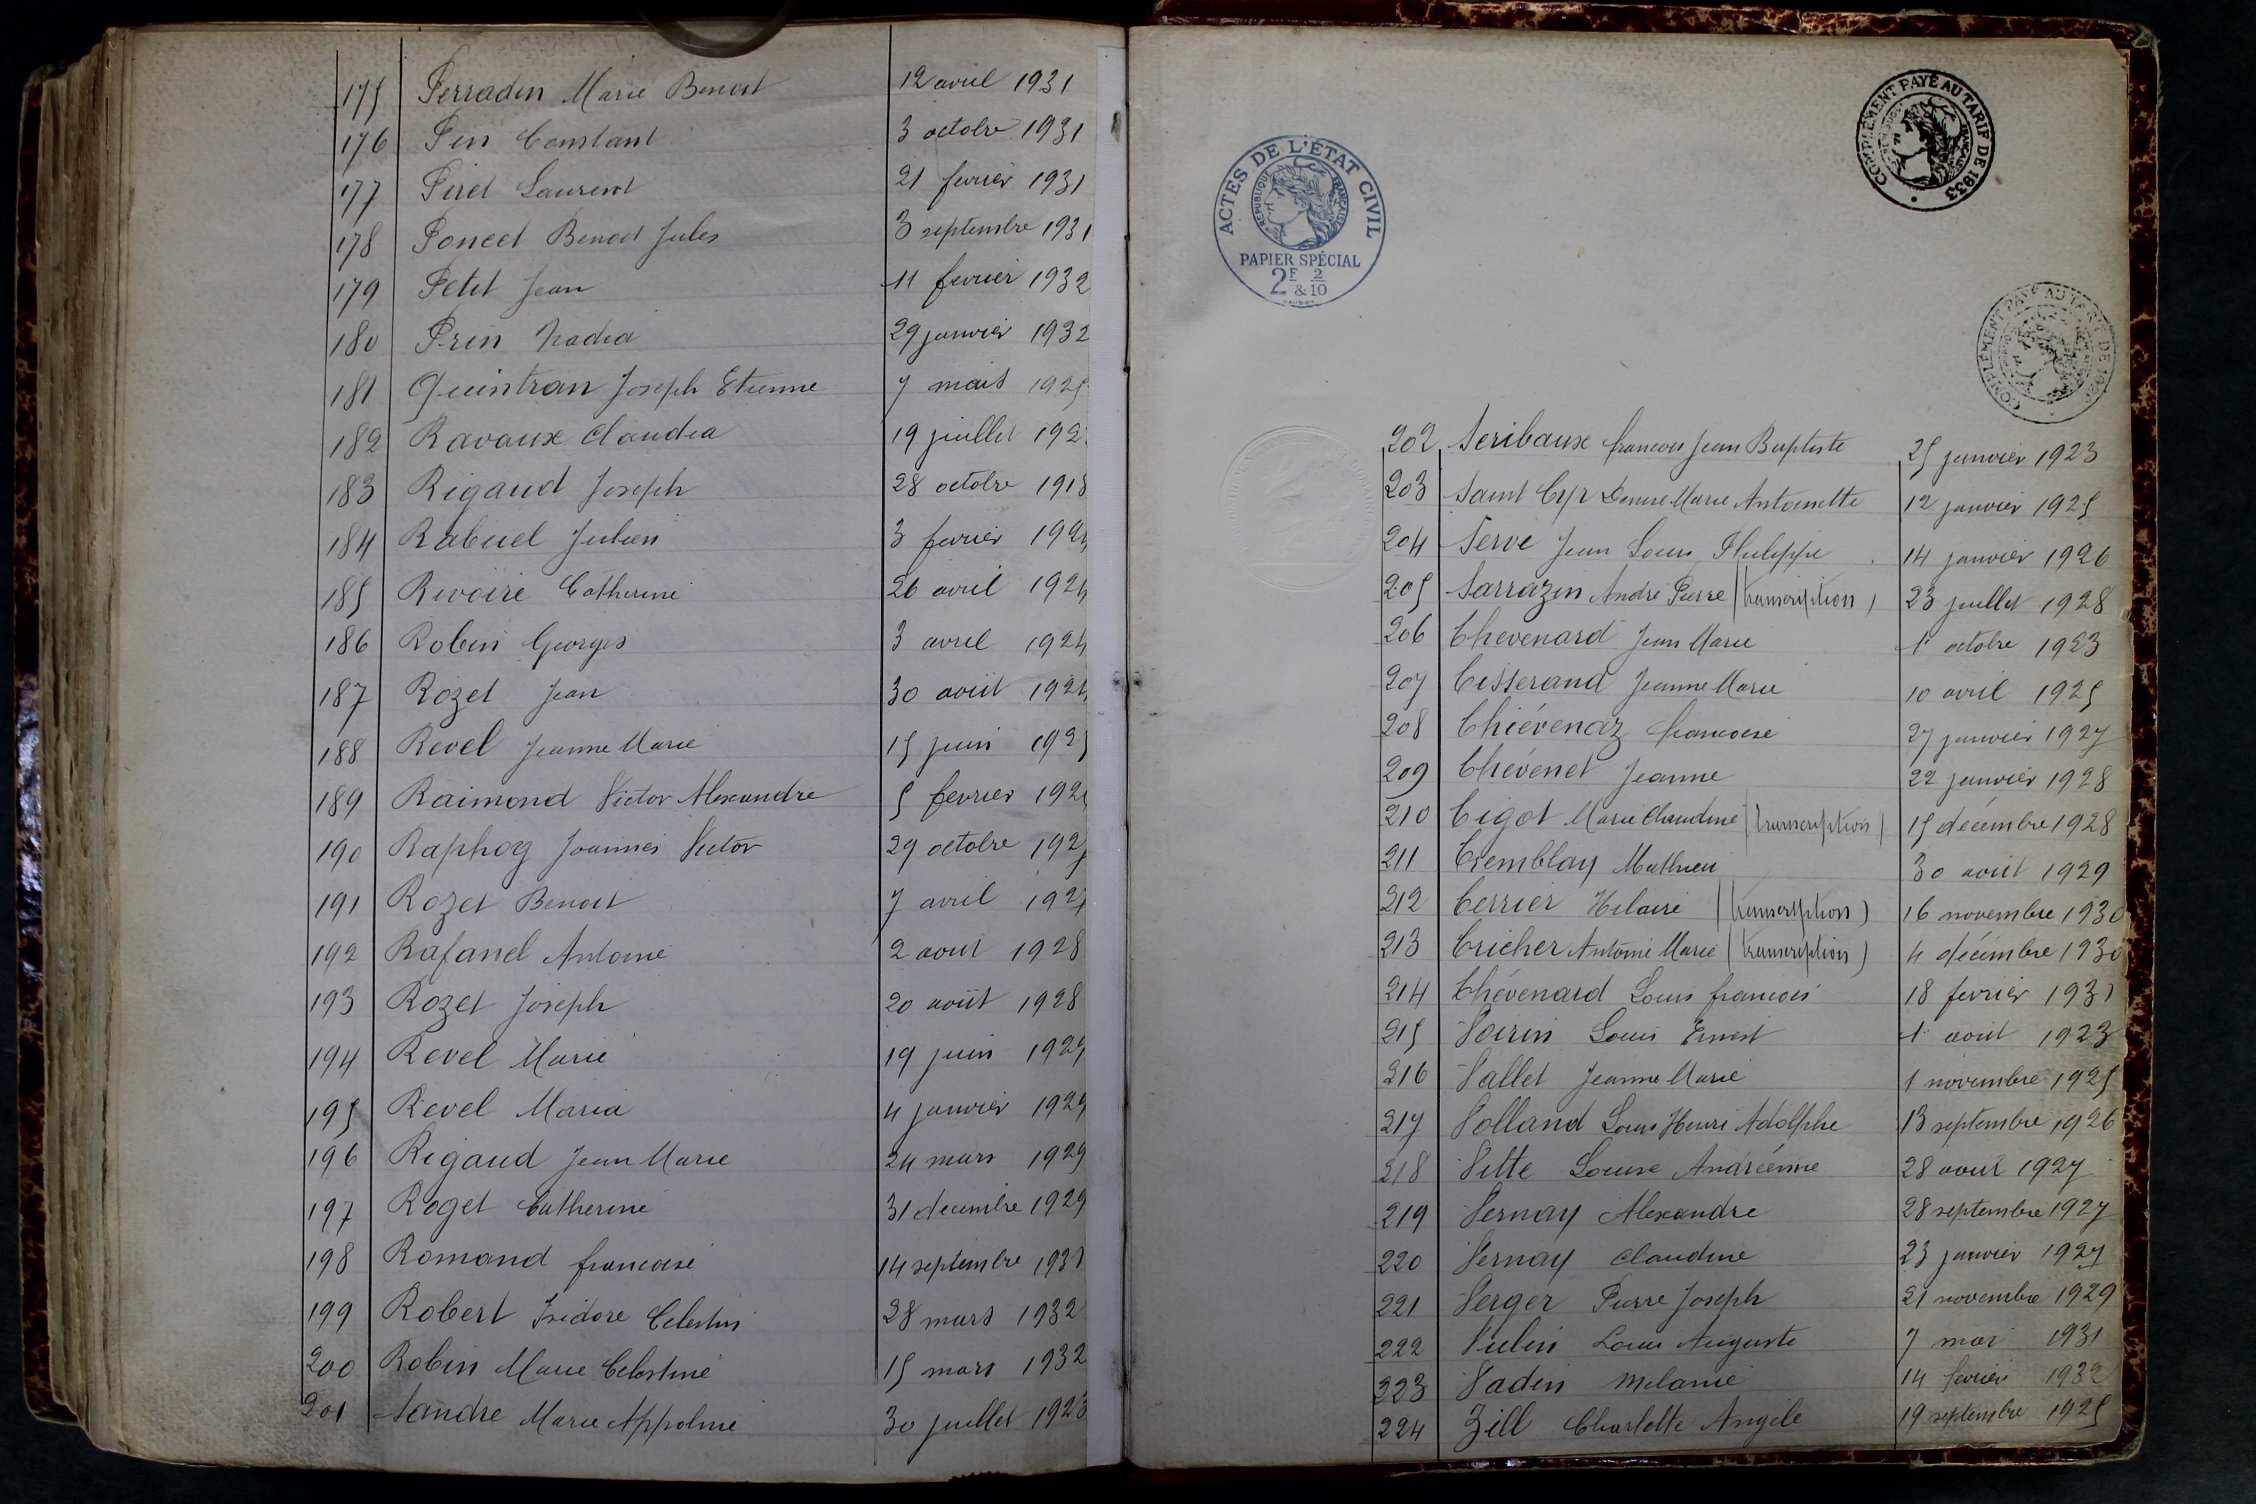 175 Perradin Marie Benoit 12 avril 1931
176 Pin Constant 3 octobre 1931
177 Piret Laurent 21 fevrier 1931
178 Poncet Benoit Jules 3 septembre 1931
179 Petit Jean 11 fevrier 1932
180 Prin Nadia 29 janvier 1932
181 Quintran Joseph Etienne 7 1925
182 Ravaux Claudia 19 juillet 192
183 Rigaud Joseph 28 octobre 1918
184 Rabuel Julien 3 fevrier 1924
185 Rivoire Catherine 26 avril 1924
186 Robin Georges 3 avril 1924
187 Rozet Jean 30 août 1924
188 Revel Jeanne Marie 15 juin 1925
189 Raimond Victor Alexandre 5 fevrier 192
190 Raphog Joannès Victor 29 octobre 192
191 Rozet Benoit 7 avril 192
192 Rafanel Antoine 2 aout 1928
193 Rozet Joseph 20 août 1928
194 Revel Marie 19 juin 1929
195 Revel Maria 4 janvier 1929
196 Rigaud Jean Marie 24 mars 1929
197 Roget Catherine 31 decembre 1929
198 Romand francoise 14 septembre 1931
199 Robert Isidore Celestin 28 mars 1932
200 Robin Marie Celestine 15 mars 1932
201 Sandre Marie Appoline 30 juillet 1923
COMPLÉMENT PAYÉ AU TARIF DE 1933
ACTES DE L'ÉTAT CIVIL
RÉPUBLIQUE FRANÇAISE
PAPIER SPÉCIAL
2F & 2/10
COMPLÉMENT PAYÉ AU TARIF DE
202 Seribaux francois Jean Baptiste 25 janvier 1923
203 Saint Cyr Denise Marie Antoinette 12 janvier 1925
204 Serve Jean Louis Philippe 14 janvier 1926
205 Sarrazin André Pierre (transcription) 23 juillet 1928
206 Thevenard Jean Marie 1 octobre 1923
207 Tisserand Jeanne Marie 10 avril 1925
208 Thiévenaz francoise 27 janvier 1927
209 Thévenet Jeanne 22 janvier 1928
210 Tigot Marie Claudine (transcription) 15 décembre 1928
211 Tremblay Mathieu 30 août 1929
212 Terrier Hilaire (transcription) 16 novembre 1930
213 Tricher Antoine Marie (transcription) 4 décembre 1930
214 Thévenard Louis francois 18 fevrier 1931
215 Voirin Louis Ernest 1 août 1923
216 Vallet Jeanne Marie 1 novembre 1925
217 Volland Louis Henri Adolphe 13 septembre 1926
218 Vitte Louise Andréenne 28 aout 1927
219 Vernay Alexandre 28 septembre 1927
220 Vernay Claudine 23 janvier 1927
221 Verger Pierre Joseph 21 novembre 1929
222 Vulin Louis Auguste 7 mai 1931
223 Vadin Melanie 14 fevrier 1932
224 Zill Charlotte Angele 19 septembre 1925